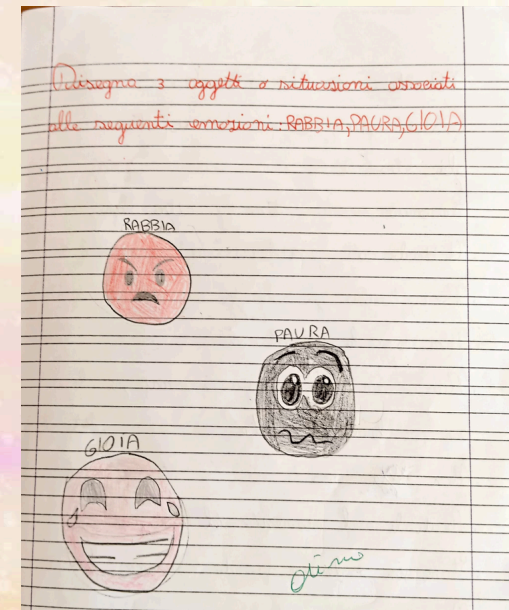 Disegna 3 oggetti o situazioni associati
alle seguenti emozioni: RABBIA, PAURA, GIOIA
RABBIA
PAURA
GIOIA